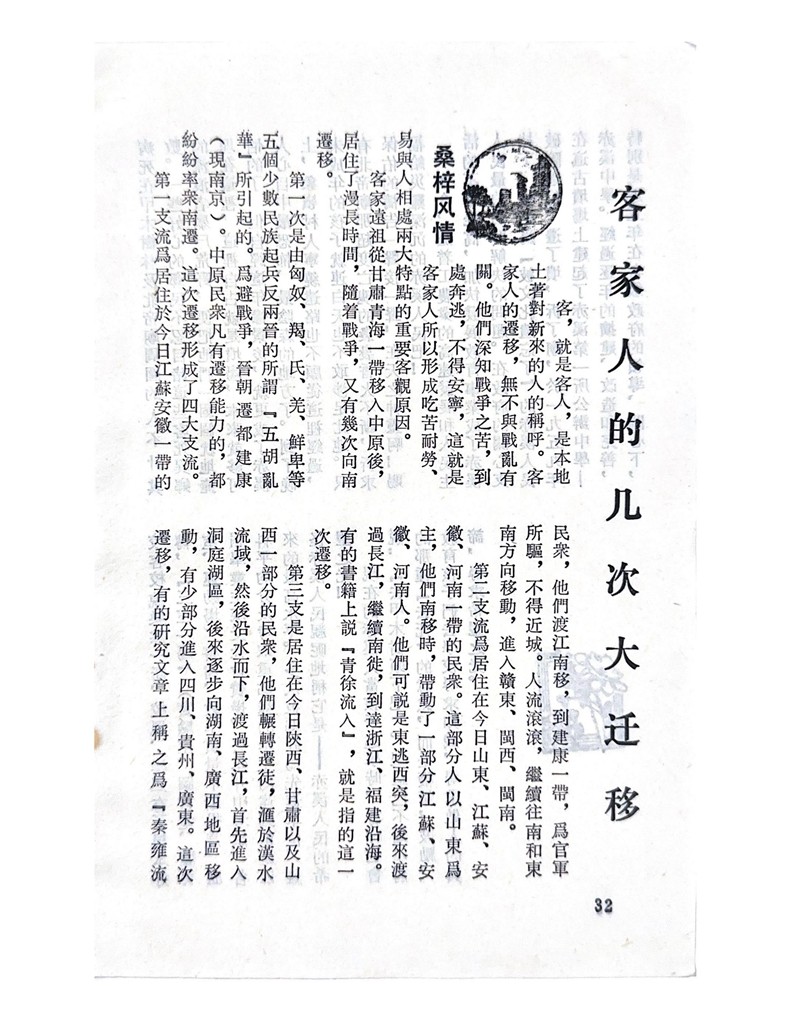 客家人的几次大迁移
桑梓风情
客，就是客人，是本地
土著對新來的人的稱呼。客
家人的遷移，無不與戰亂有
關。他們深知戰爭之苦，到
處奔逃，不得安寧，這就是
客家人所以形成吃苦耐勞、
易與人相處兩大特點的重要客觀原因。
客家遠祖從甘肅青海一帶移入中原後，
居住了漫長時間，隨着戰爭，又有幾次向南
遷移。
第一次是由匈奴、羯、氏、羌、鮮卑等
五個少數民族起兵反兩晉的所謂『五胡亂
華』所引起的。爲避戰爭，晉朝遷都建康
（現南京）。中原民衆凡有遷移能力的，都
紛紛率衆南遷。這次遷移形成了四大支流。
第一支流爲居住於今日江蘇安徽一帶的
民衆，他們渡江南移，到建康一帶，爲官軍
所驅，不得近城。人流滚滚，繼續往南和東
南方向移動，進入贛東、閩西、閩南。
第二支流爲居住在今日山東、江蘇、安
徽、河南一帶的民衆。這部分人以山東爲
主，他們南移時，帶動了一部分江蘇、安
徽、河南人。他們可説是東逃西突，後來渡
過長江，繼續南徙，到達浙江、福建沿海。
有的書籍上説『青徐流入』，就是指的這一
次遷移。
第三支是居住在今日陝西、甘肅以及山
西一部分的民衆，他們輾轉遷徒，滙於漢水
流域，然後沿水而下，渡過長江，首先進入
洞庭湖區，後來逐步向湖南、廣西地區移
動，有少部分進入四川、貴州、廣東。這次
遷移，有的研究文章上稱之爲『秦雍流
32